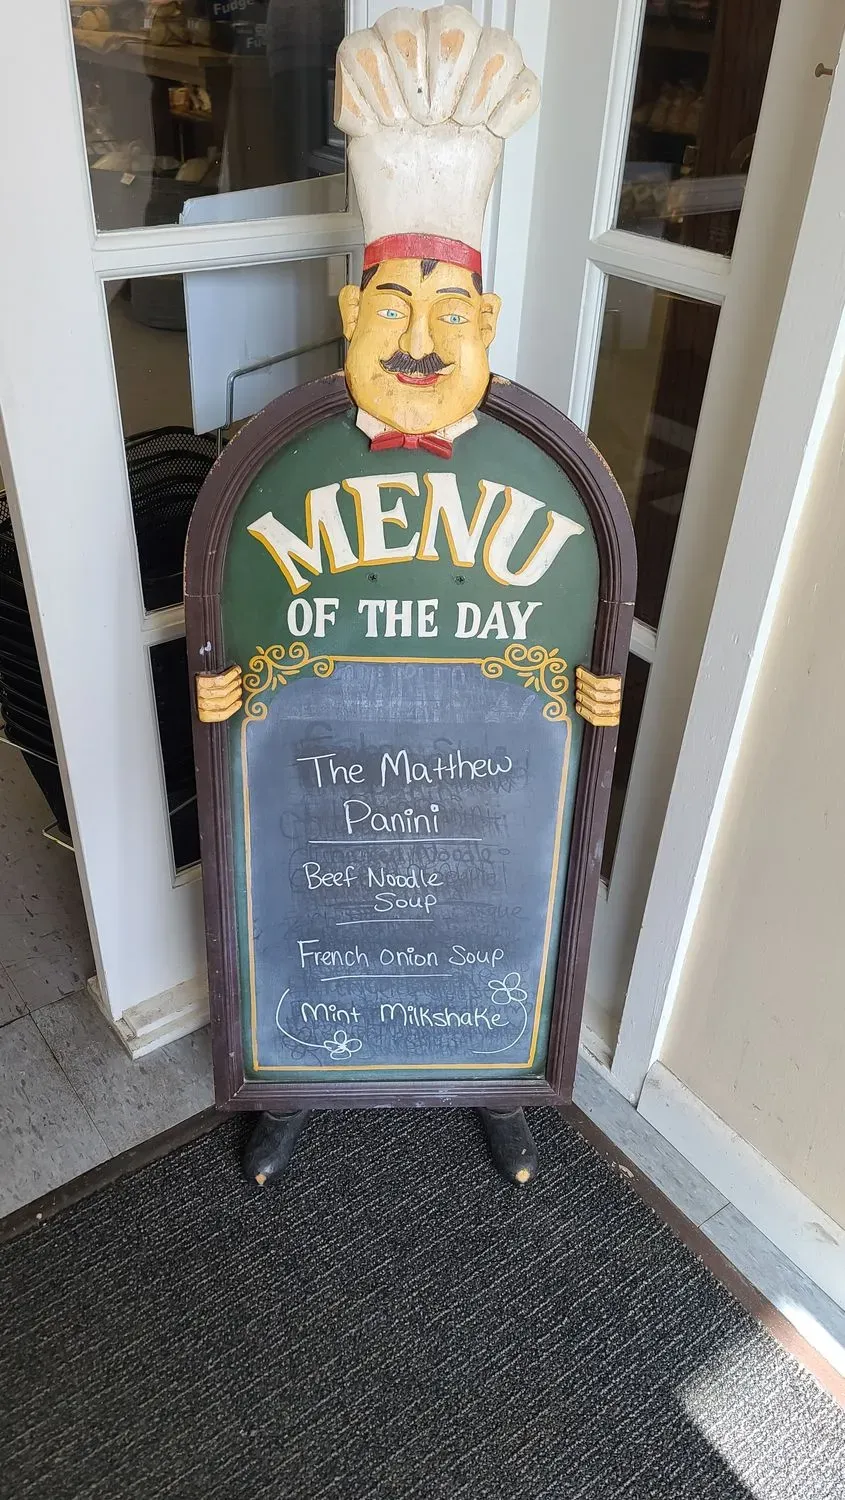 Fudge
MENU
OF THE DAY
The Matthew
Panini
Beef Noodle
Soup
French Onion Soup
Mint Milkshake